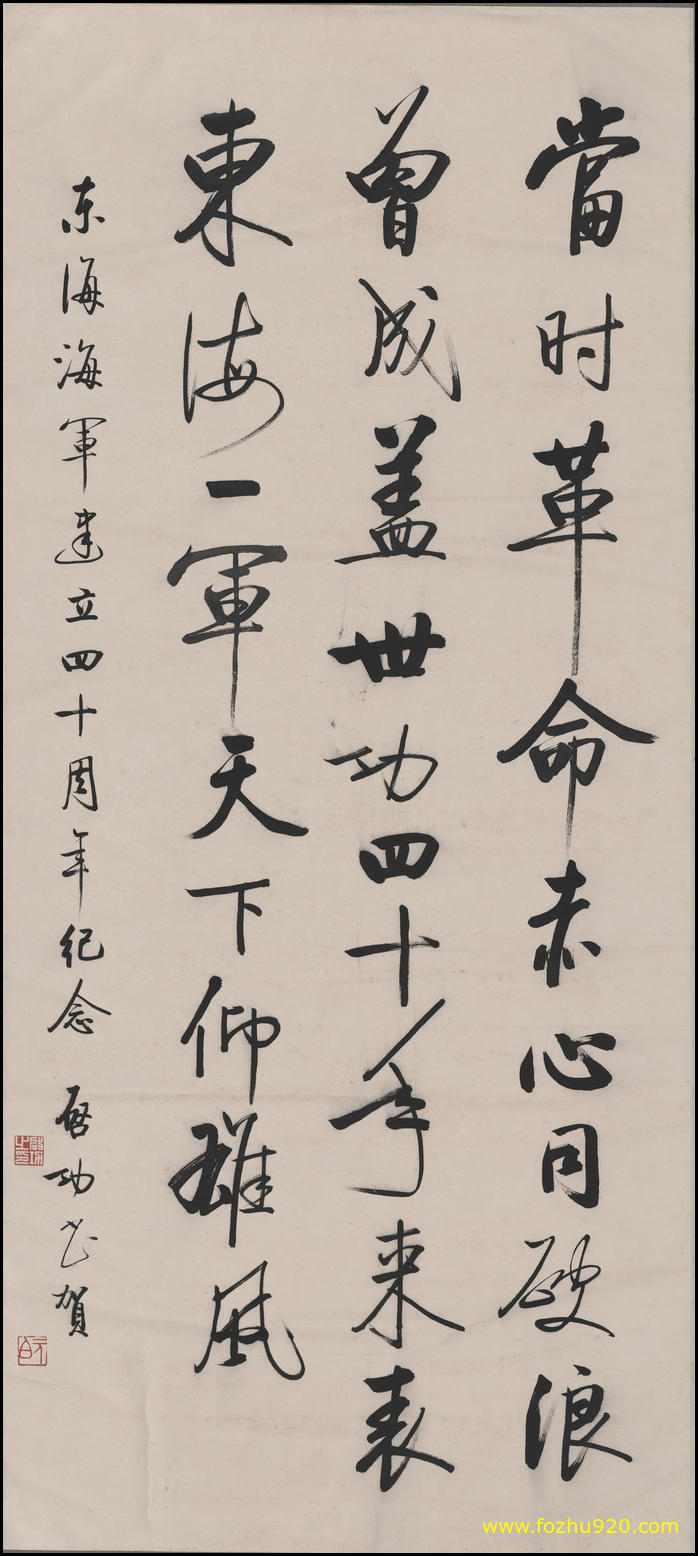 當时革命赤心同破浪
曾成盖世功四十年来表
東海一軍天下仰雄風
东海海軍建立四十周年纪念 启功书賀
www.fozhu920.com